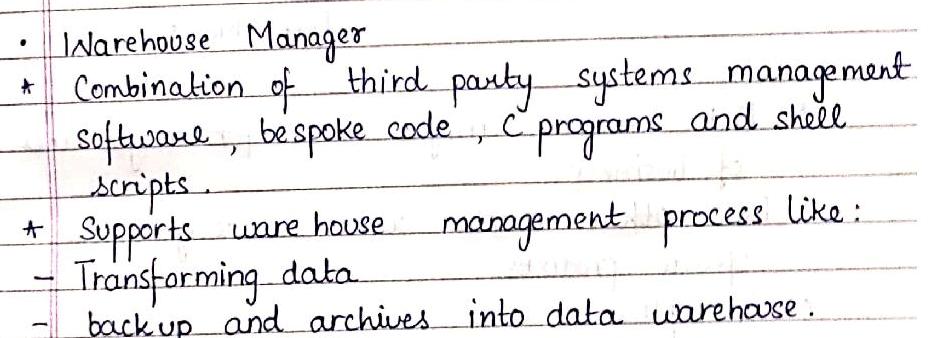 · Warehouse Manager
* Combination of third party systems management
software, bespoke code, C programs and shell
scripts.
* Supports ware house management process like:
- Transforming data
- backup and archives into data warehouse.